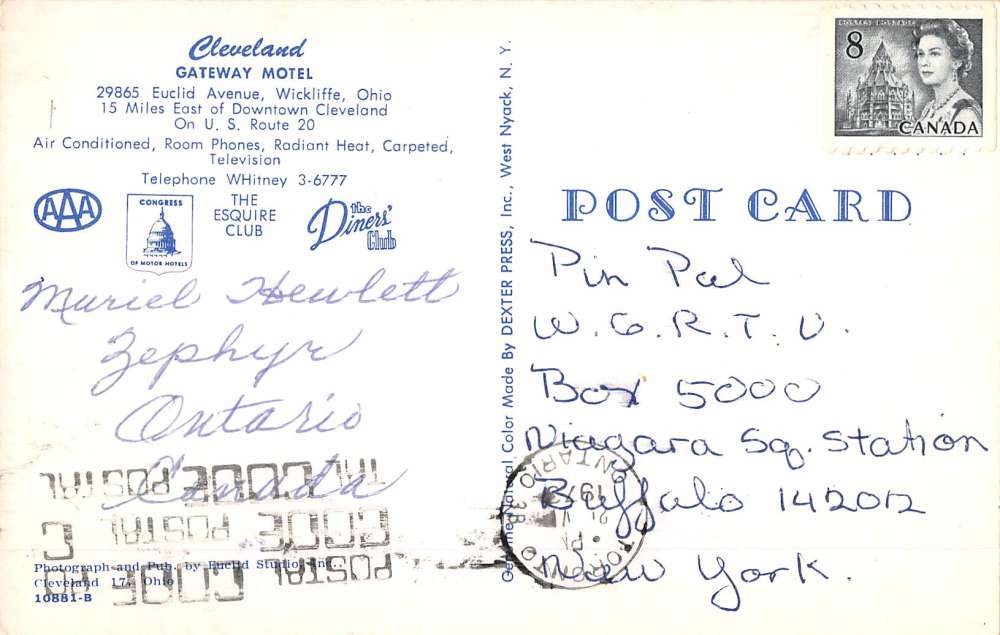 Cleveland
GATEWAY MOTEL
29865 Euclid Avenue, Wickliffe, Ohio
15 Miles East of Downtown Cleveland
On U. S. Route 20
Air Conditioned, Room Phones, Radiant Heat, Carpeted,
Television
Telephone WHitney 3-6777
AAA
CONGRESS
OF MOTOR HOTELS
THE
ESQUIRE
CLUB
the
Diners'
Club
Muriel Hewlett
Zephyr
Ontario
Canada
POSTAL
CODE POSTAL
CODE POSTAL C
POSTAL CODE
Photograph and Pub. by Euclid Studio, Inc.
Cleveland 17, Ohio
10881-B
Genuine Natural Color Made By DEXTER PRESS, Inc., West Nyack, N. Y.
POSTES POSTAGE
8
CANADA
POST CARD
Pin Pal
W. G. R. T. V.
Box 5000
Niagara Sq. Station
Buffalo 142012
New York.
TORONTO
ONTARIO